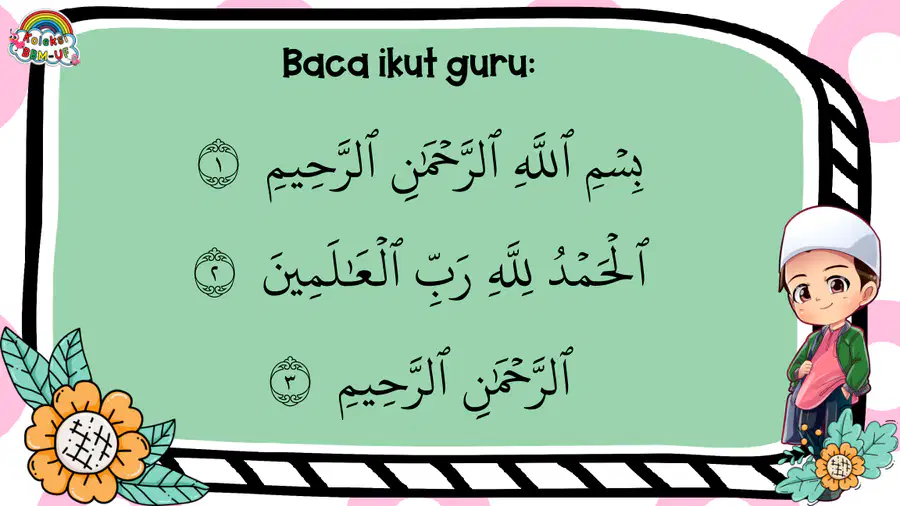 Koleksi
BBM-UF
Baca ikut guru:
بِسۡمِ ٱللَّهِ ٱلرَّحۡمَـٰنِ ٱلرَّحِيمِ ١
ٱلۡحَمۡدُ لِلَّهِ رَبِّ ٱلۡعَـٰلَمِينَ ٢
ٱلرَّحۡمَـٰنِ ٱلرَّحِيمِ ٣